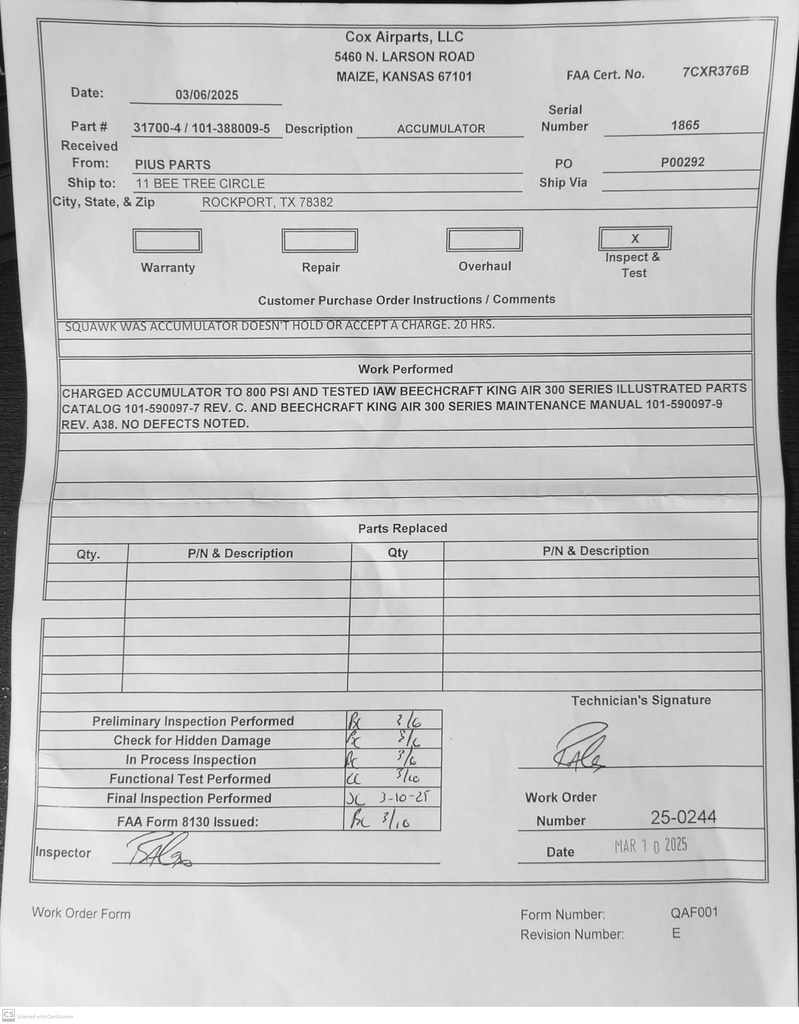 Cox Airparts, LLC
5460 N. LARSON ROAD
MAIZE, KANSAS 67101
FAA Cert. No. 7CXR376B
Date: 03/06/2025
Part # 31700-4 / 101-388009-5 Description ACCUMULATOR Serial Number 1865
Received From: PIUS PARTS PO P00292
Ship to: 11 BEE TREE CIRCLE Ship Via
City, State, & Zip ROCKPORT, TX 78382
X
Warranty Repair Overhaul Inspect & Test
Customer Purchase Order Instructions / Comments
SQUAWK WAS ACCUMULATOR DOESN'T HOLD OR ACCEPT A CHARGE. 20 HRS.
Work Performed
CHARGED ACCUMULATOR TO 800 PSI AND TESTED IAW BEECHCRAFT KING AIR 300 SERIES ILLUSTRATED PARTS
CATALOG 101-590097-7 REV. C. AND BEECHCRAFT KING AIR 300 SERIES MAINTENANCE MANUAL 101-590097-9
REV. A38. NO DEFECTS NOTED.
Parts Replaced
Qty. P/N & Description Qty P/N & Description
Technician's Signature
Preliminary Inspection Performed 3/6
Check for Hidden Damage 3/6
In Process Inspection 3/6
Functional Test Performed 3/10
Final Inspection Performed 3-10-25
FAA Form 8130 Issued: 3/10
Work Order Number 25-0244
Inspector
Date MAR 10 2025
Work Order Form
Form Number: QAF001
Revision Number: E
CS Scanned with CamScanner